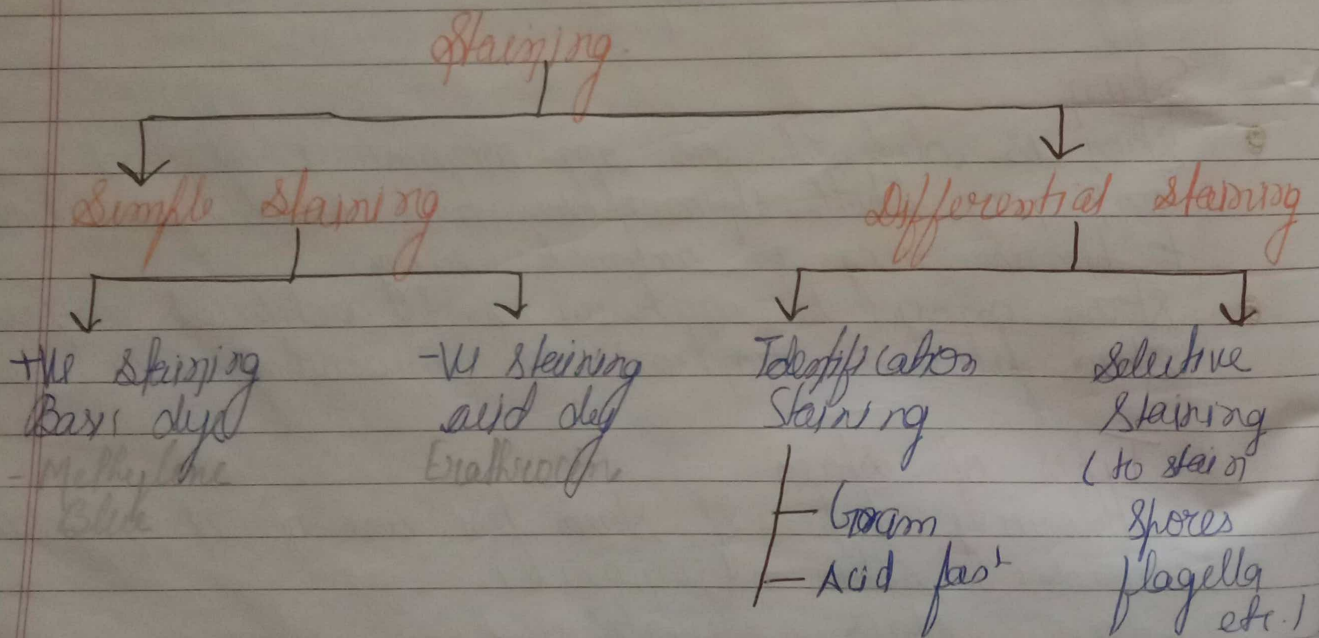 Staining
Simple Staining
Differential Staining
+Ve Staining
Basic dye
- Methylene
Blue
-Ve Staining
acid dye
Identification
Staining
- Gram
- Acid fast
Selective
Staining
( to stain
Spores
flagella
etc.)